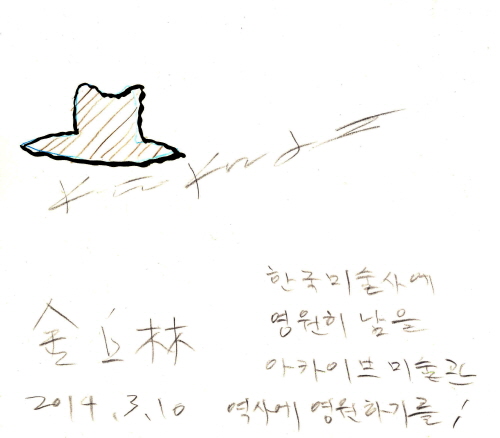 한국미술사에
영원히 남을
아카이브미술관
역사에 영원하기를!
金丘林
2014.3.10